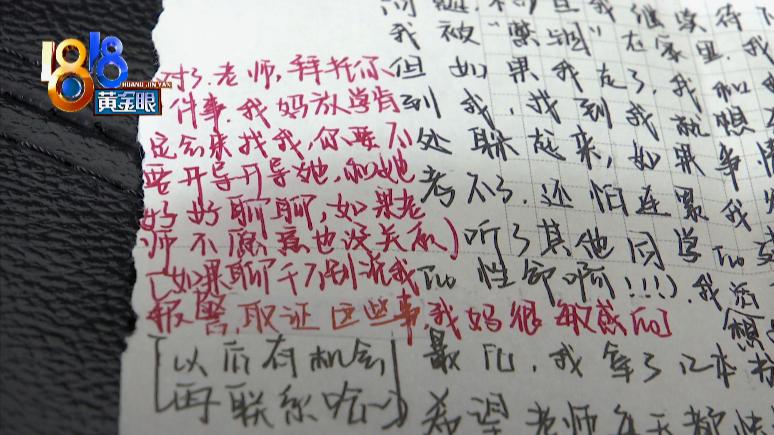 1818
HUANG JIN YAN
黄金眼
对了.老师,拜托你
件事.我妈放学肯
定会来找我,你要不
要开导开导她,和她
好好聊聊,如果老
师不愿意也没关系)
[如果聊千万别说我
报警,取证这些事,我妈很敏感的]
我继续待下
我被"禁锢"在家里,我
但如果我走了,我和
到我,找到我就想
处联起来,如果事情
考不了,还怕连累我
听了其他同学的
的性命啊!!!).我活
想
最后,我拿了几本
希望老师每天都快
[以后有机会
再联系哈~]